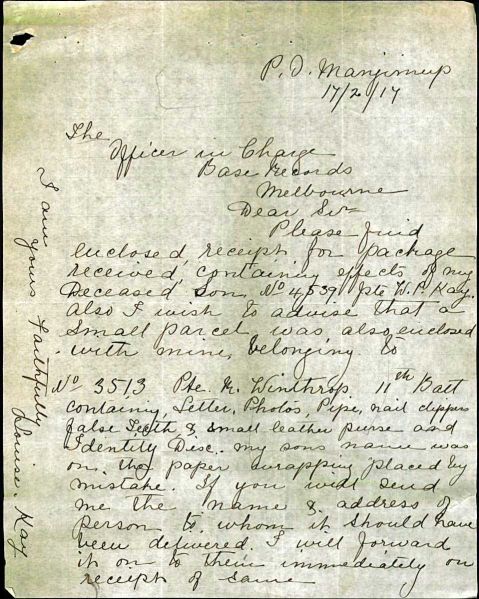 P.O. Manjimup
17/2/17
The
Officer in Charge
Base Records
Melbourne
Dear Sir
Please find
enclosed, receipt, for package
received, containing effects of my
Deceased, son, No 4539. Pte W. P. Kay.
also I wish to advise that a
small parcel was also, enclosed
with mine, belonging to
No 3513 Pte. N. Winthrop 11th Batt
containg, Letter, Photos, Pipe, nail clippers
False Teeth & small leather purse and
Identity Disc. my sons name was
on the paper wrapping placed by
mistake. If you will send
me the name & address of
person to whom it should have
been delivered. I will forward
it on to them immediately on
receipt of same
I am
yours faithfully
Louise. Kay